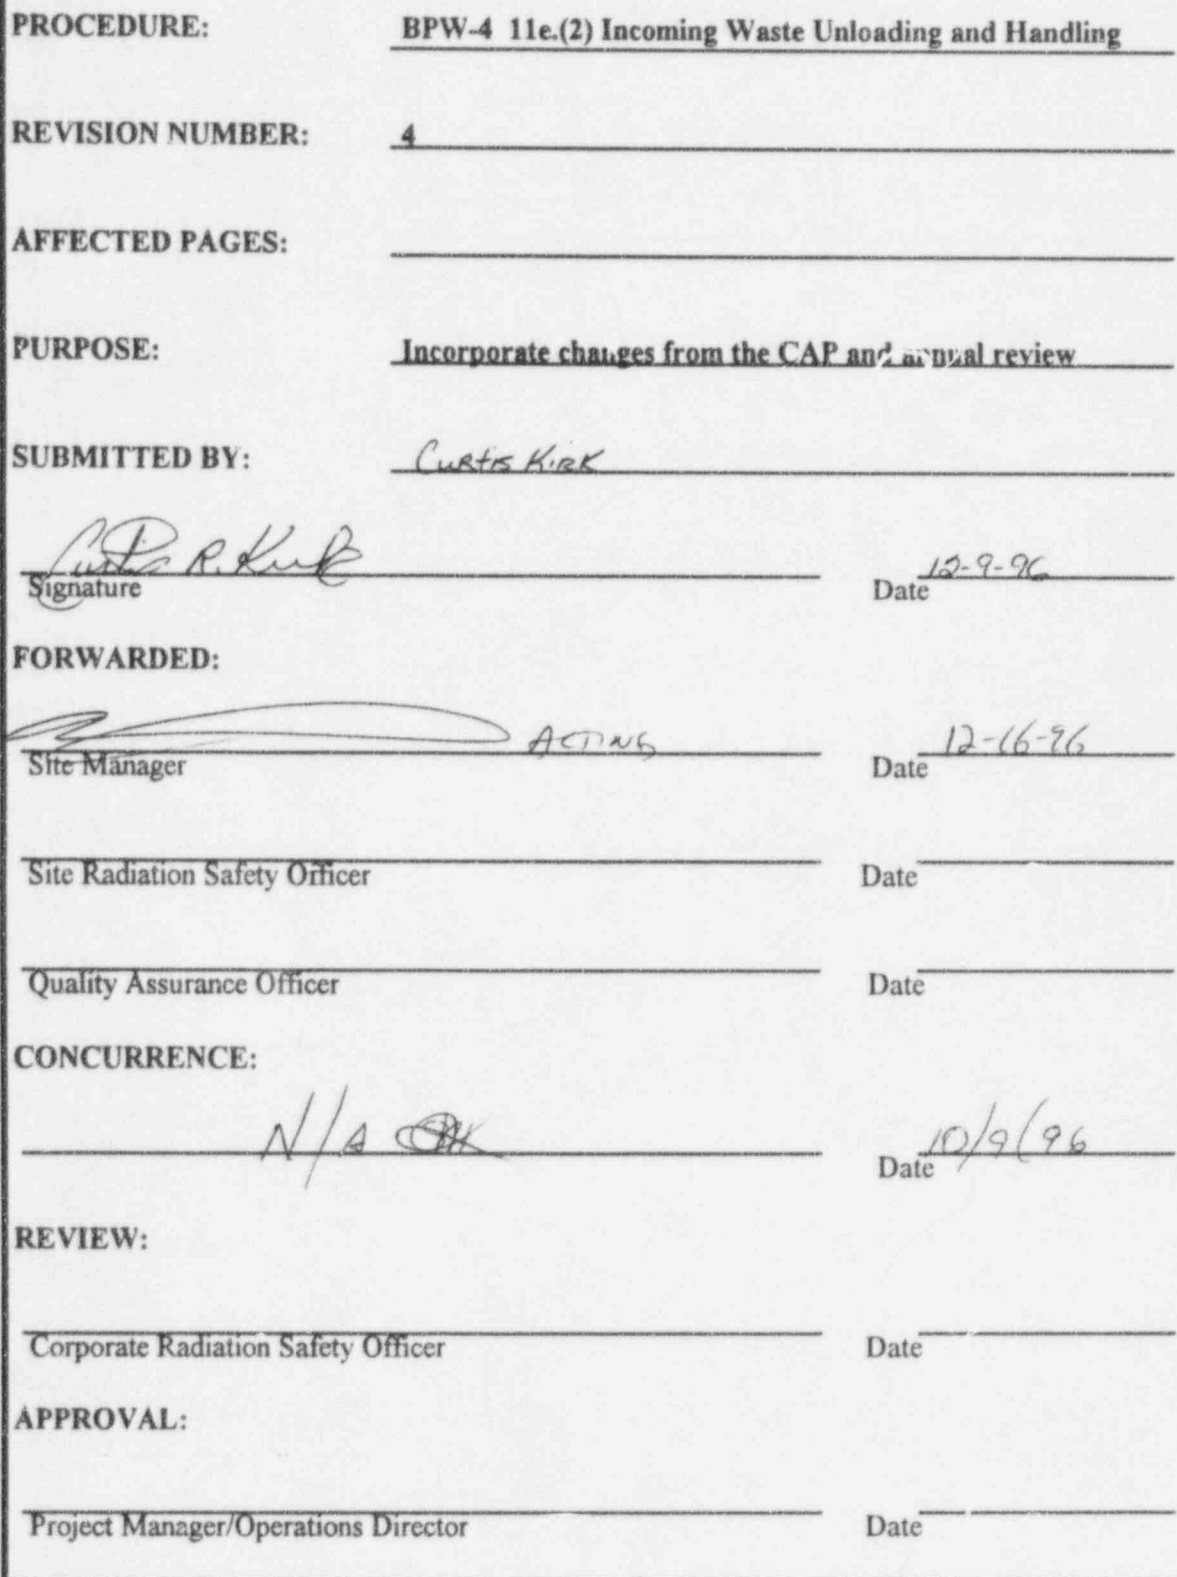 PROCEDURE: BPW-4 11e.(2) Incoming Waste Unloading and Handling
REVISION NUMBER: 4
AFFECTED PAGES:
PURPOSE: Incorporate changes from the CAP and annual review
SUBMITTED BY: Curtis Kirk
Curtis R. Kirk 12-9-96
Signature Date
FORWARDED:
ACTING 12-16-96
Site Manager Date
Site Radiation Safety Officer Date
Quality Assurance Officer Date
CONCURRENCE:
N/A 10/9/96
Date
REVIEW:
Corporate Radiation Safety Officer Date
APPROVAL:
Project Manager/Operations Director Date